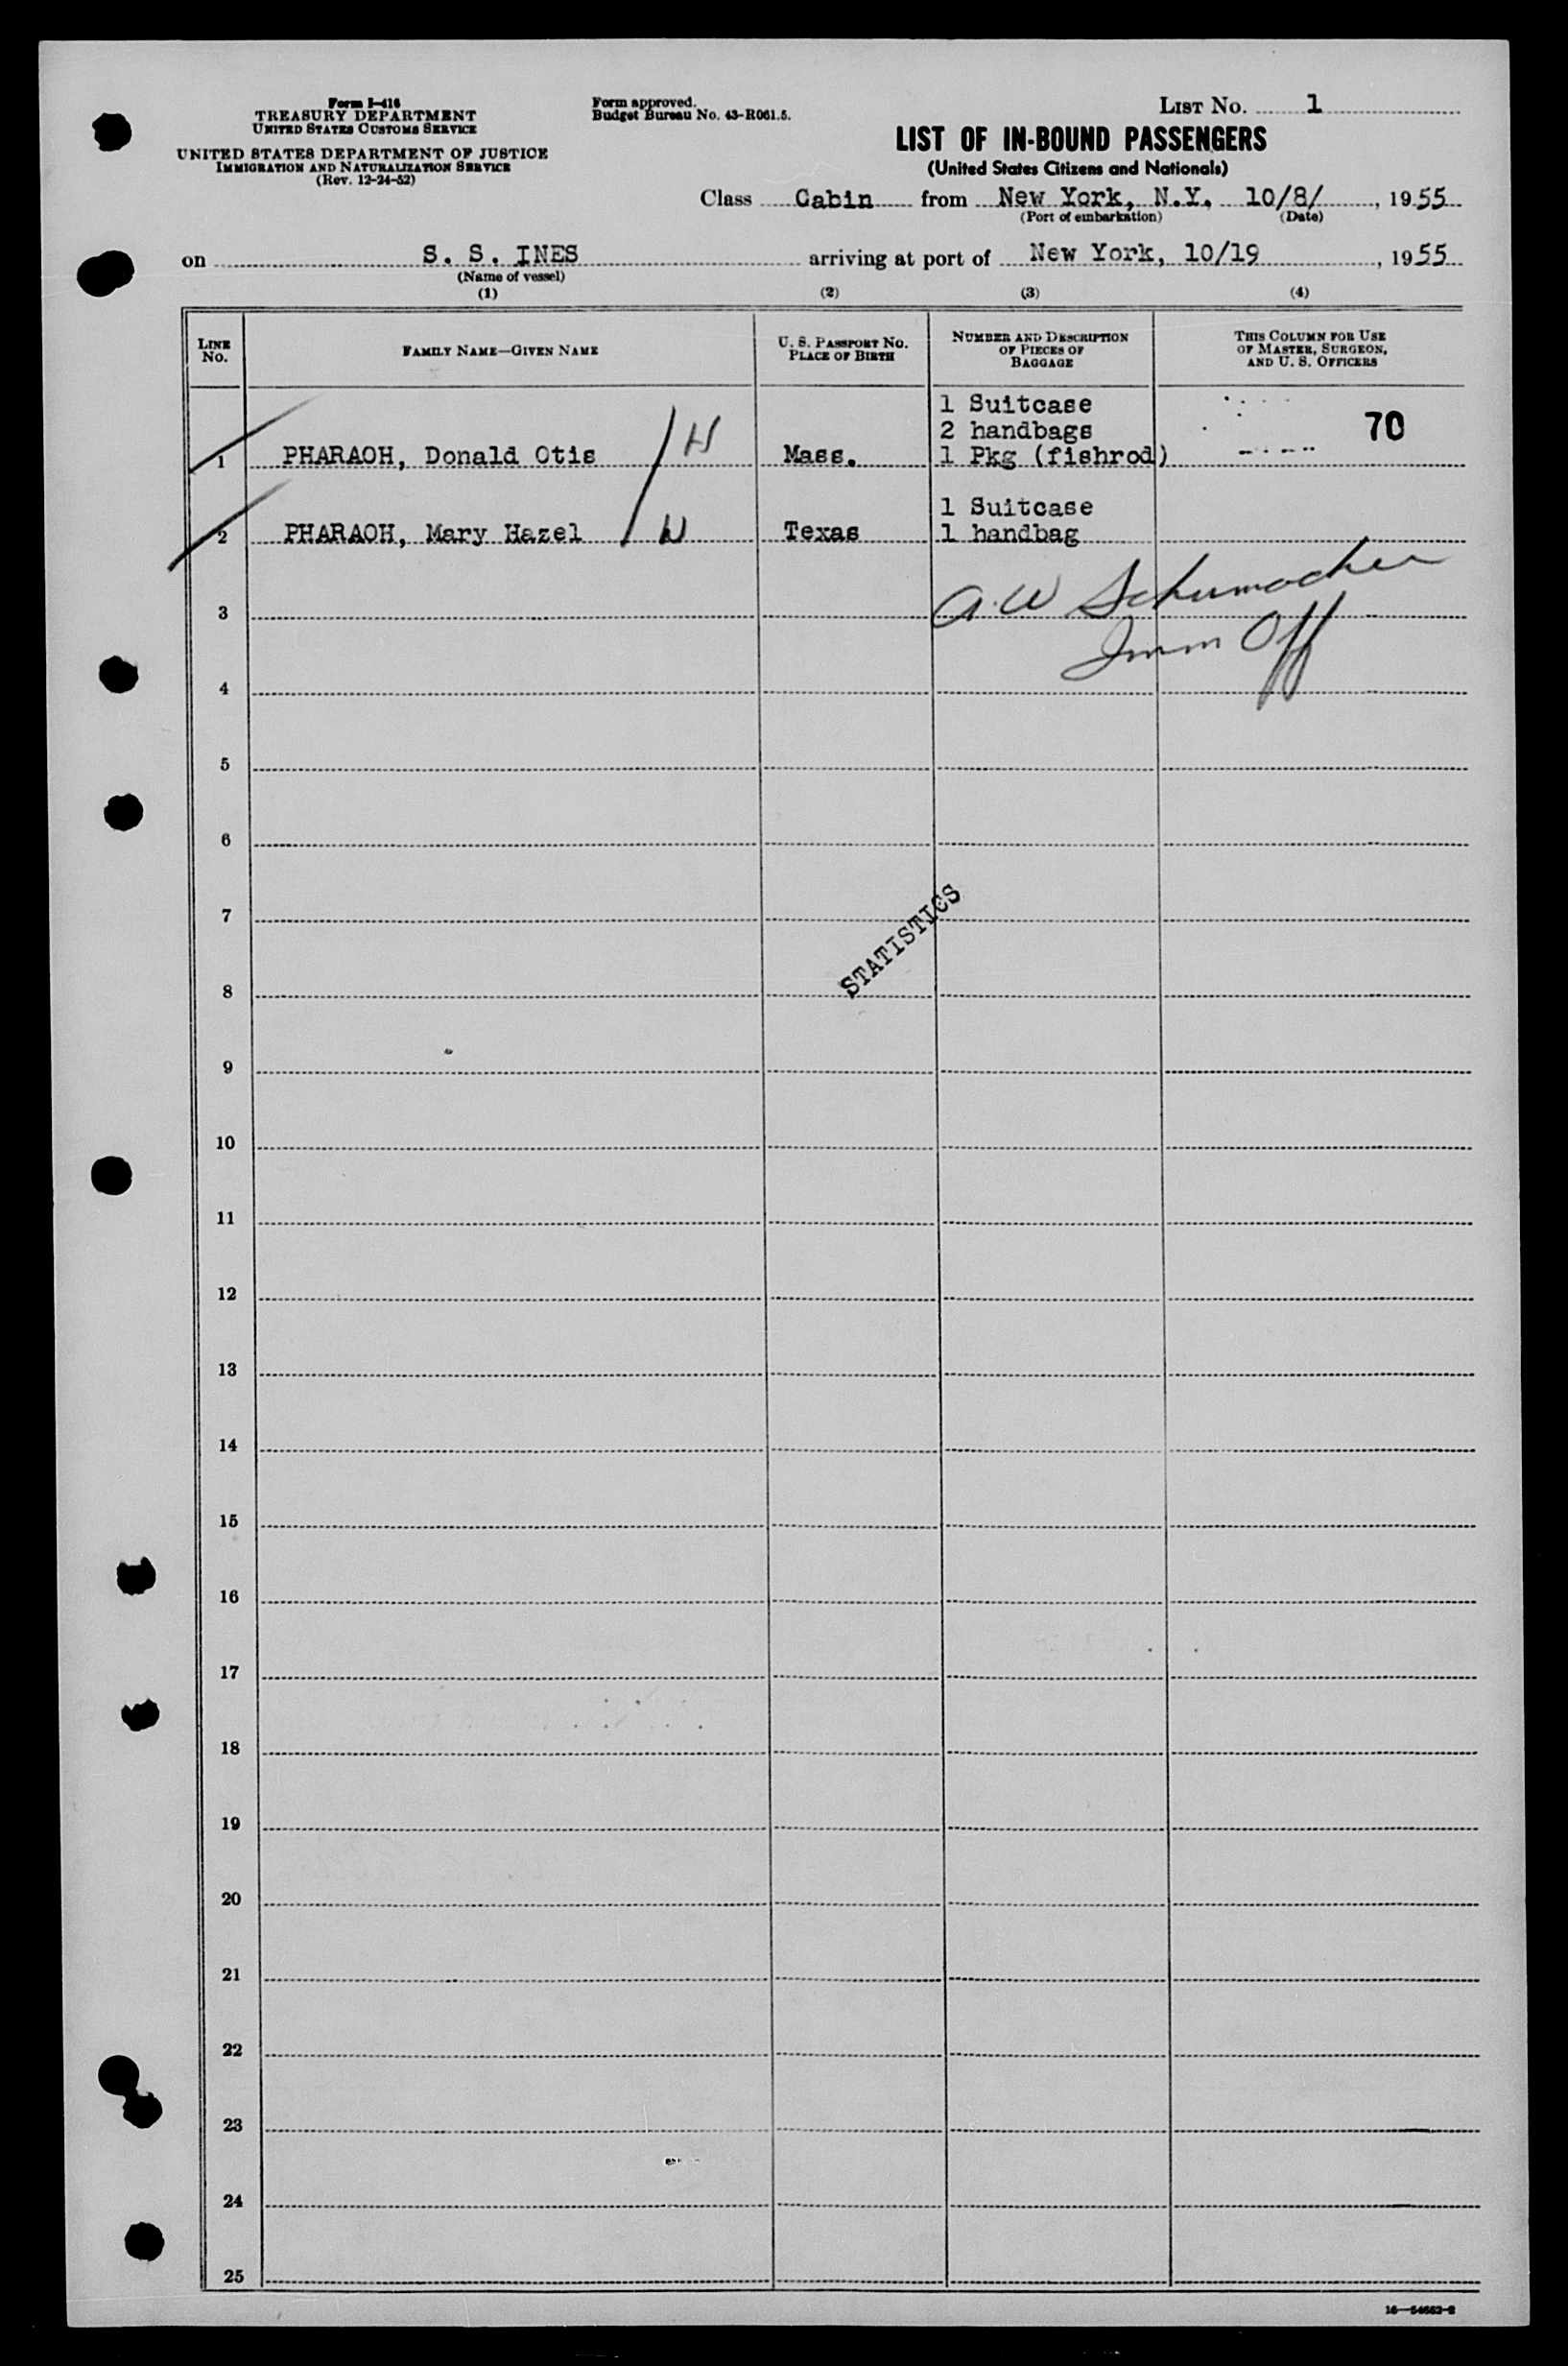 Form I-416
TREASURY DEPARTMENT
UNITED STATES CUSTOMS SERVICE
UNITED STATES DEPARTMENT OF JUSTICE
IMMIGRATION AND NATURALIZATION SERVICE
(Rev. 12-24-52)
Form approved.
Budget Bureau No. 43-R061.5.
LIST No. 1
LIST OF IN-BOUND PASSENGERS
(United States Citizens and Nationals)
Class Cabin from New York, N.Y. 10/8/, 1955
(Port of embarkation) (Date)
on S. S. INES arriving at port of New York, 10/19, 1955
(Name of vessel)
(1) (2) (3) (4)
LINE No. FAMILY NAME—GIVEN NAME U. S. PASSPORT No. PLACE OF BIRTH NUMBER AND DESCRIPTION OF PIECES OF BAGGAGE THIS COLUMN FOR USE OF MASTER, SURGEON, AND U. S. OFFICERS
1 Suitcase
2 handbags 70
1 PHARAOH, Donald Otis H Mass. 1 Pkg (fishrod)
1 Suitcase
2 PHARAOH, Mary Hazel W Texas 1 handbag
A. W Schumacher
3
Imm Off
4
5
6
7
STATISTICS
8
9
10
11
12
13
14
15
16
17
18
19
20
21
22
23
24
25
16—54662-2